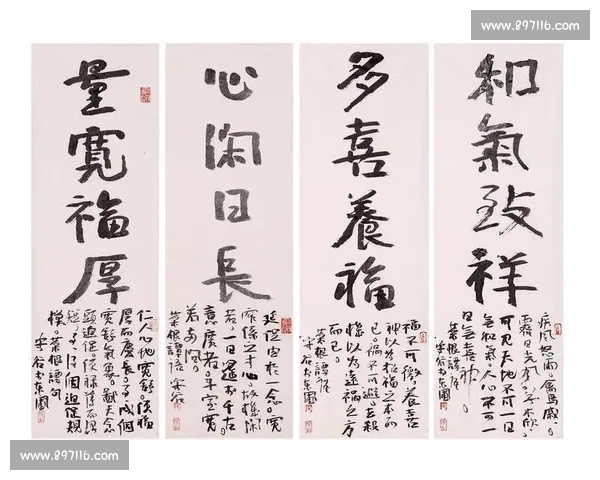 www.897116.com
和氣致祥
疾風怒雨禽鳥戚戚
霽日光風草木欣欣
可見天地不可一日
無和氣人心不可一
日無喜神
菜根譚語
多喜養福
福不可徼養喜
神以為招福之本而
已禍不可避去殺
機以為遠禍之方
而已
菜根譚語
心闲日長
延促由於一念寬
窄係之寸心故機闲
者一日遙於千古
意廣者斗室寬
若兩间
菜根譚語
量寬福厚
仁人心地寬舒便福
厚而慶長事事成個
寬舒氣象鄙夫念
頭迫促便祿薄而澤
短事事得個迫促規
模菜根譚句
www.897116.com